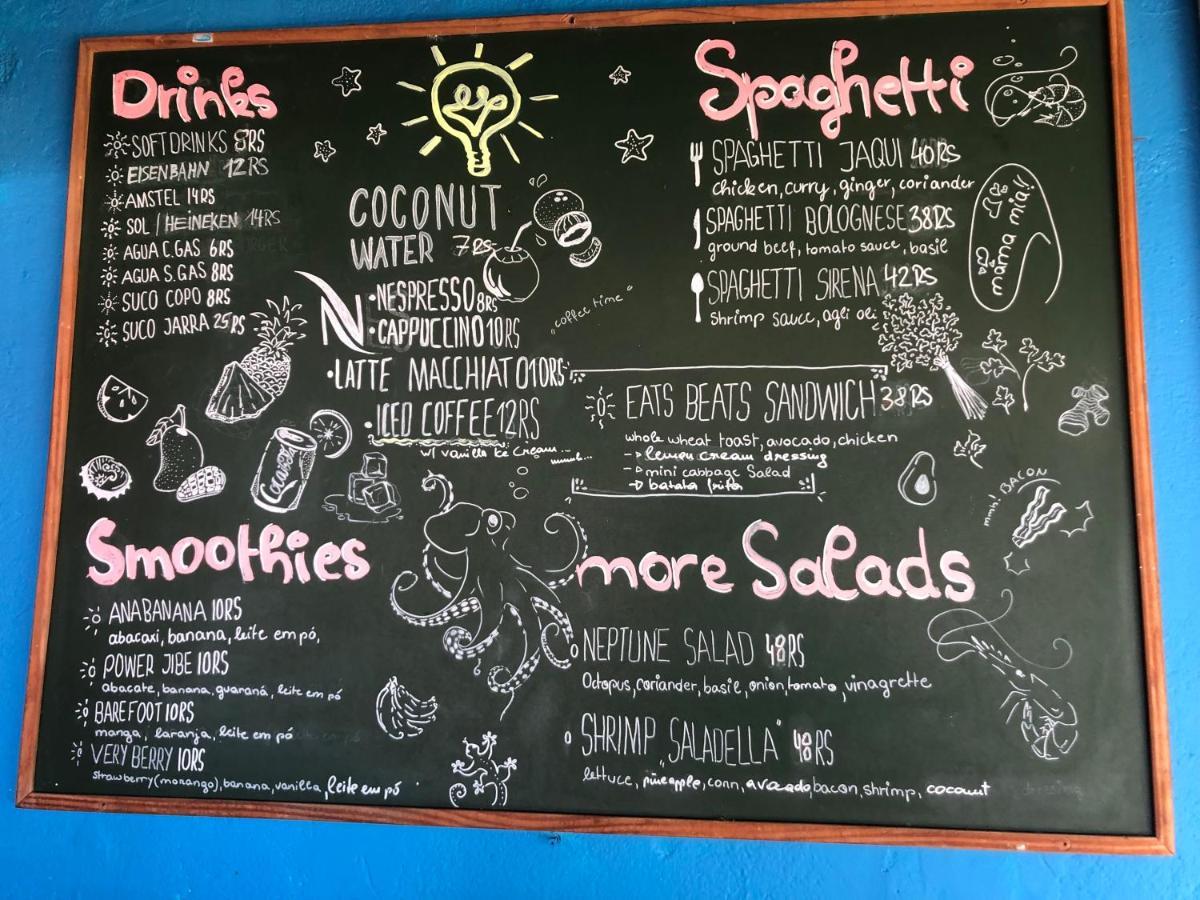 Drinks
SOFTDRINKS 8RS
EISENBAHN 12RS
AMSTEL 14RS
SOL / HEINEKEN 14RS
AGUA C.GAS 6RS
AGUA S.GAS 8RS
SUCO COPO 8RS
SUCO JARRA 25RS
COCONUT
WATER 7RS
NESPRESSO 8RS
CAPPUCCINO 10RS
LATTE MACCHIATO 10RS
ICED COFFEE 12RS
w/ vanilla ice cream...
"coffee time"
Spaghetti
SPAGHETTI JAQUI 40RS
chicken, curry, ginger, coriander
SPAGHETTI BOLOGNESE 38RS
ground beef, tomato sauce, basil
SPAGHETTI SIRENA 42RS
shrimp sauce, agli oli
mama mia!!
EATS BEATS SANDWICH 38RS
whole wheat toast, avocado, chicken
lemon cream dressing
mini cabbage Salad
batata frita
mmh! BACON
Smoothies
ANABANANA 10RS
abacaxi, banana, leite em pó,
POWER JIBE 10RS
abacate, banana, guaraná, leite em pó
BAREFOOT 10RS
manga, laranja, leite em pó
VERY BERRY 10RS
strawberry (morango), banana, vanilla, leite em pó
more Salads
NEPTUNE SALAD 48RS
Octopus, coriander, basil, onion, tomato, vinagrette
SHRIMP „SALADELLA" 48RS
lettuce, pineapple, corn, avocado, bacon, shrimp, coconut